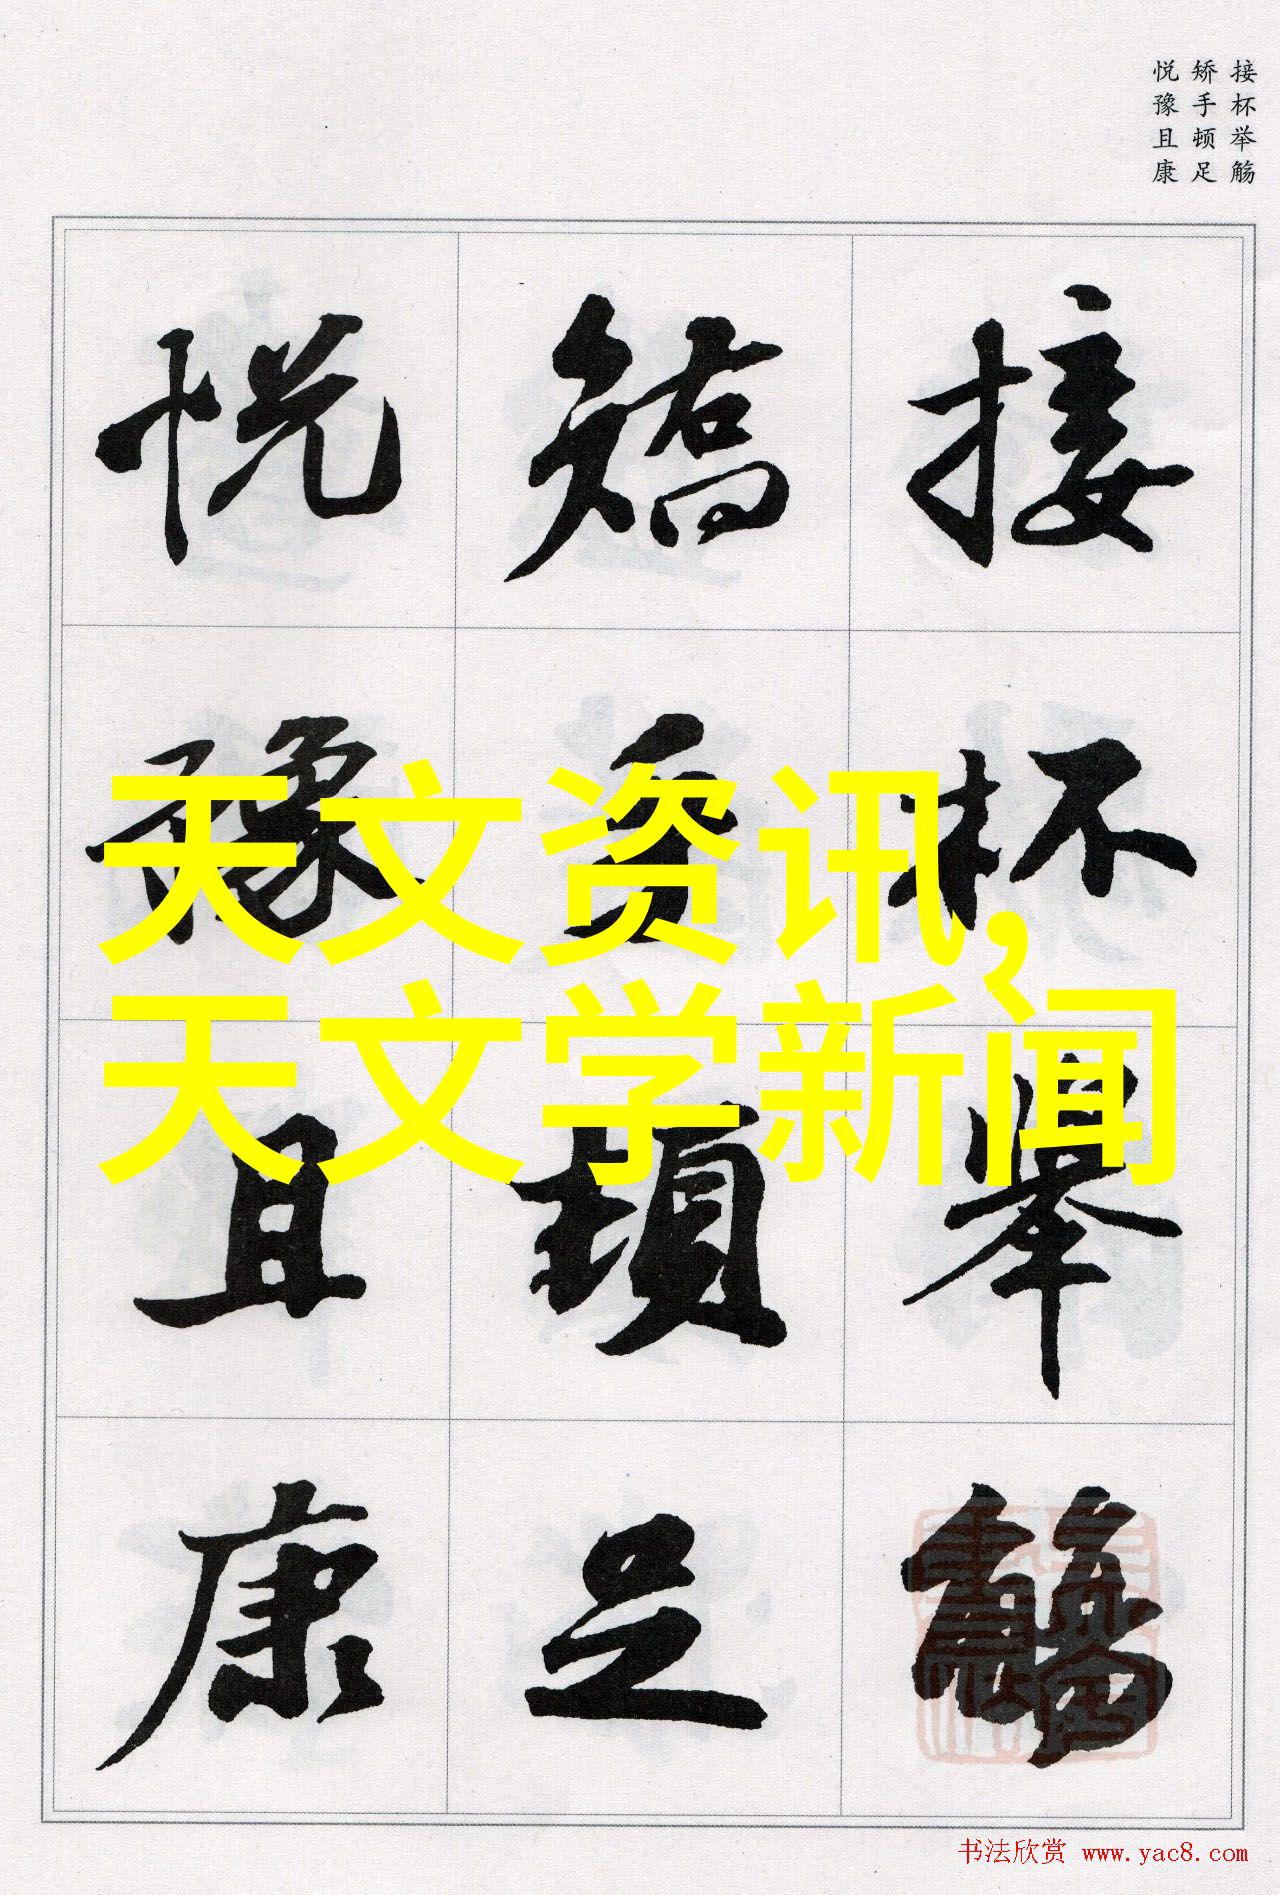 接杯举觞
矫手顿足
悦豫且康
接杯舉觴
矯手頓足
悦豫且康
天文资讯,
天文学新闻
书法欣赏 www.yac8.com